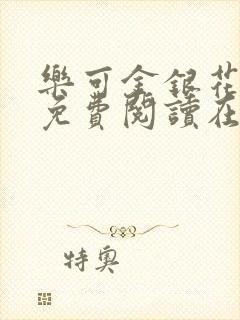 樂可金銀花
免費閱讀在
特奧